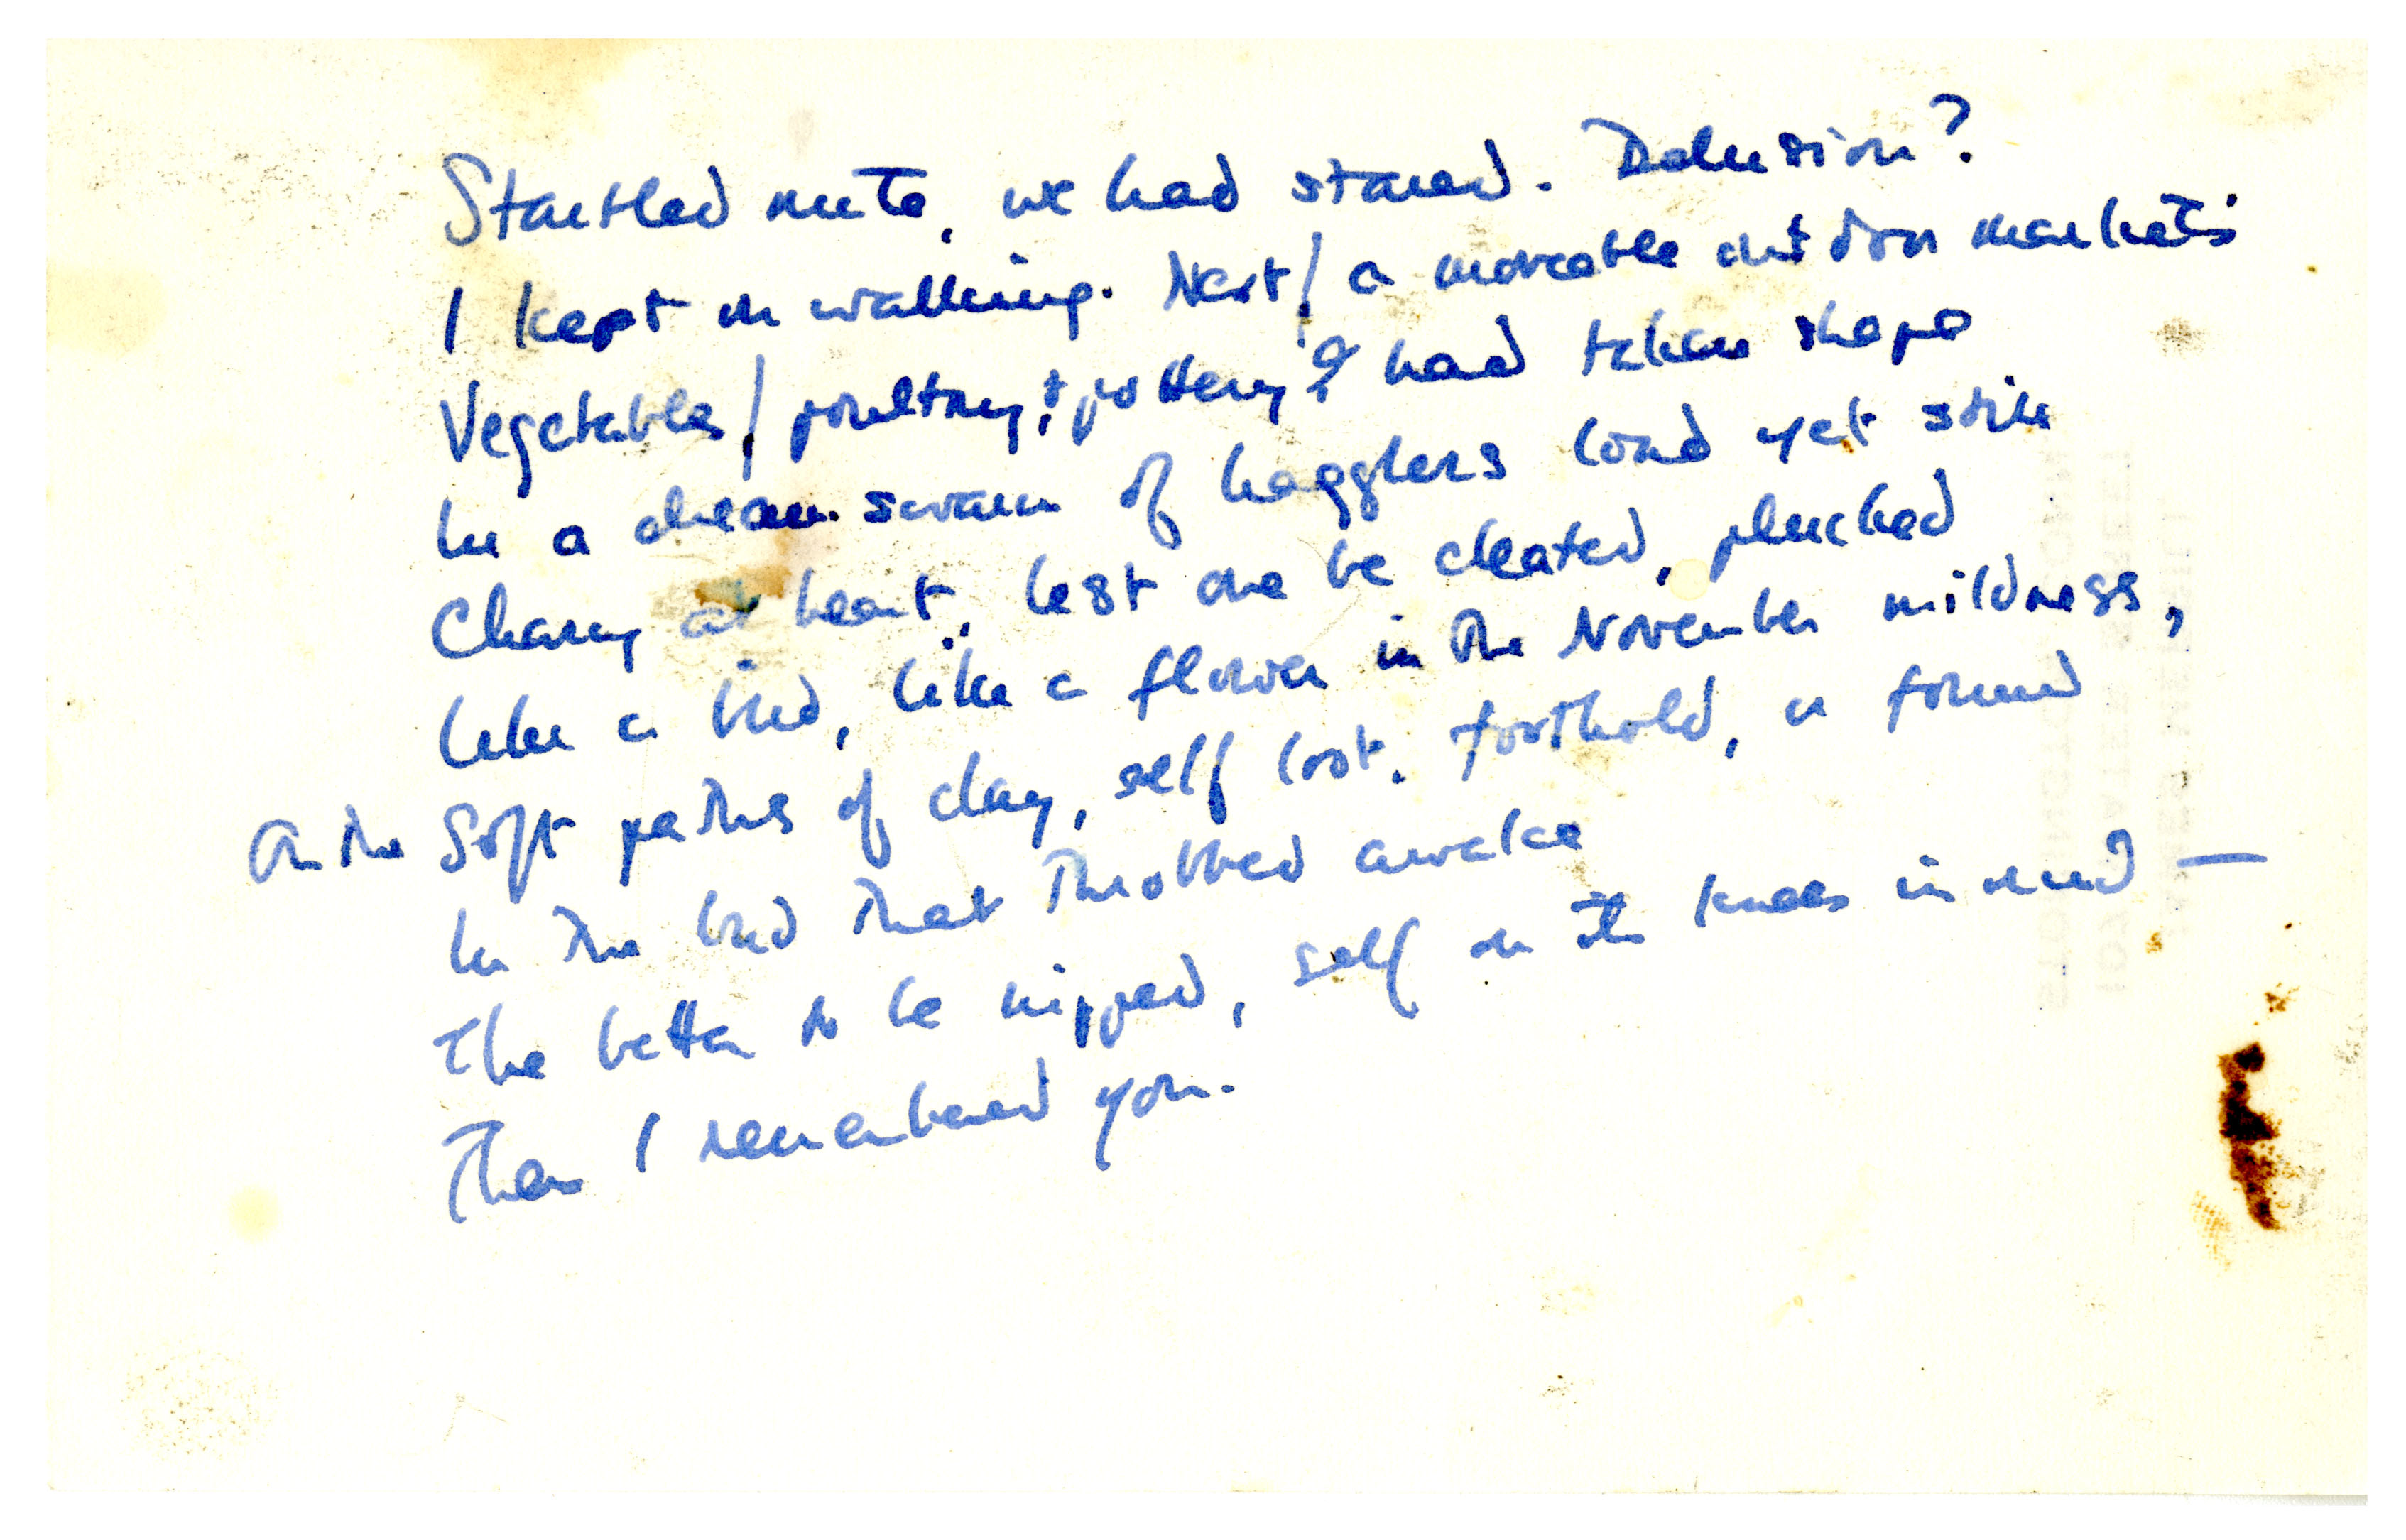 Startled mute, we had stared. Delusion?
I kept on walking. Next / a moveable outdoor market's
Vegetables / poultry, & pottery had taken shape
In a dream-swarm of hagglers loud yet still
Chary at heart, lest one be cheated, plucked
Like a bird, like a flower in the November mildness,
On the Soft paths of clay, self lost. foothold, or found
In the bud that throbbed awake
The better to be nipped, self on its knees in mud —
Then I remembered you.